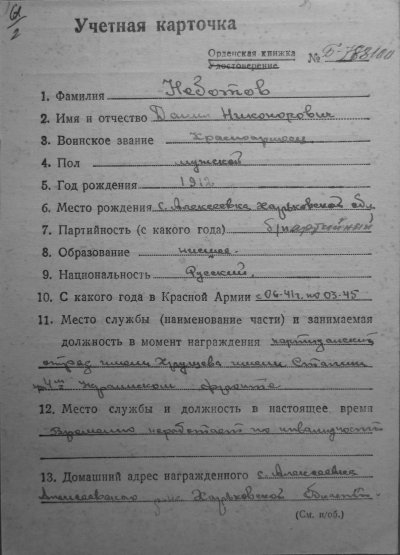 6/2
Учетная карточка
Орденская книжка
Удостоверение № Б-788100
1. Фамилия Неботов
2. Имя и отчество Данил Никонорович
3. Воинское звание Красноармеец
4. Пол мужской
5. Год рождения 1912
6. Место рождения с. Алексеевка Харьковской обл.
7. Партийность (с какого года) б/партийный
8. Образование низшее.
9. Национальность Русский.
10. С какого года в Красной Армии с 06-41г. по 03-45
11. Место службы (наименование части) и занимаемая
должность в момент награждения партизанский
отряд имени Хрущева имени Сталина
4ый Украинском фронте
12. Место службы и должность в настоящее время
Временно неработает по инвалидности
13. Домашний адрес награжденного с. Алексеевка
Алексеевского р-на Харьковской области.
(См. н/об.)